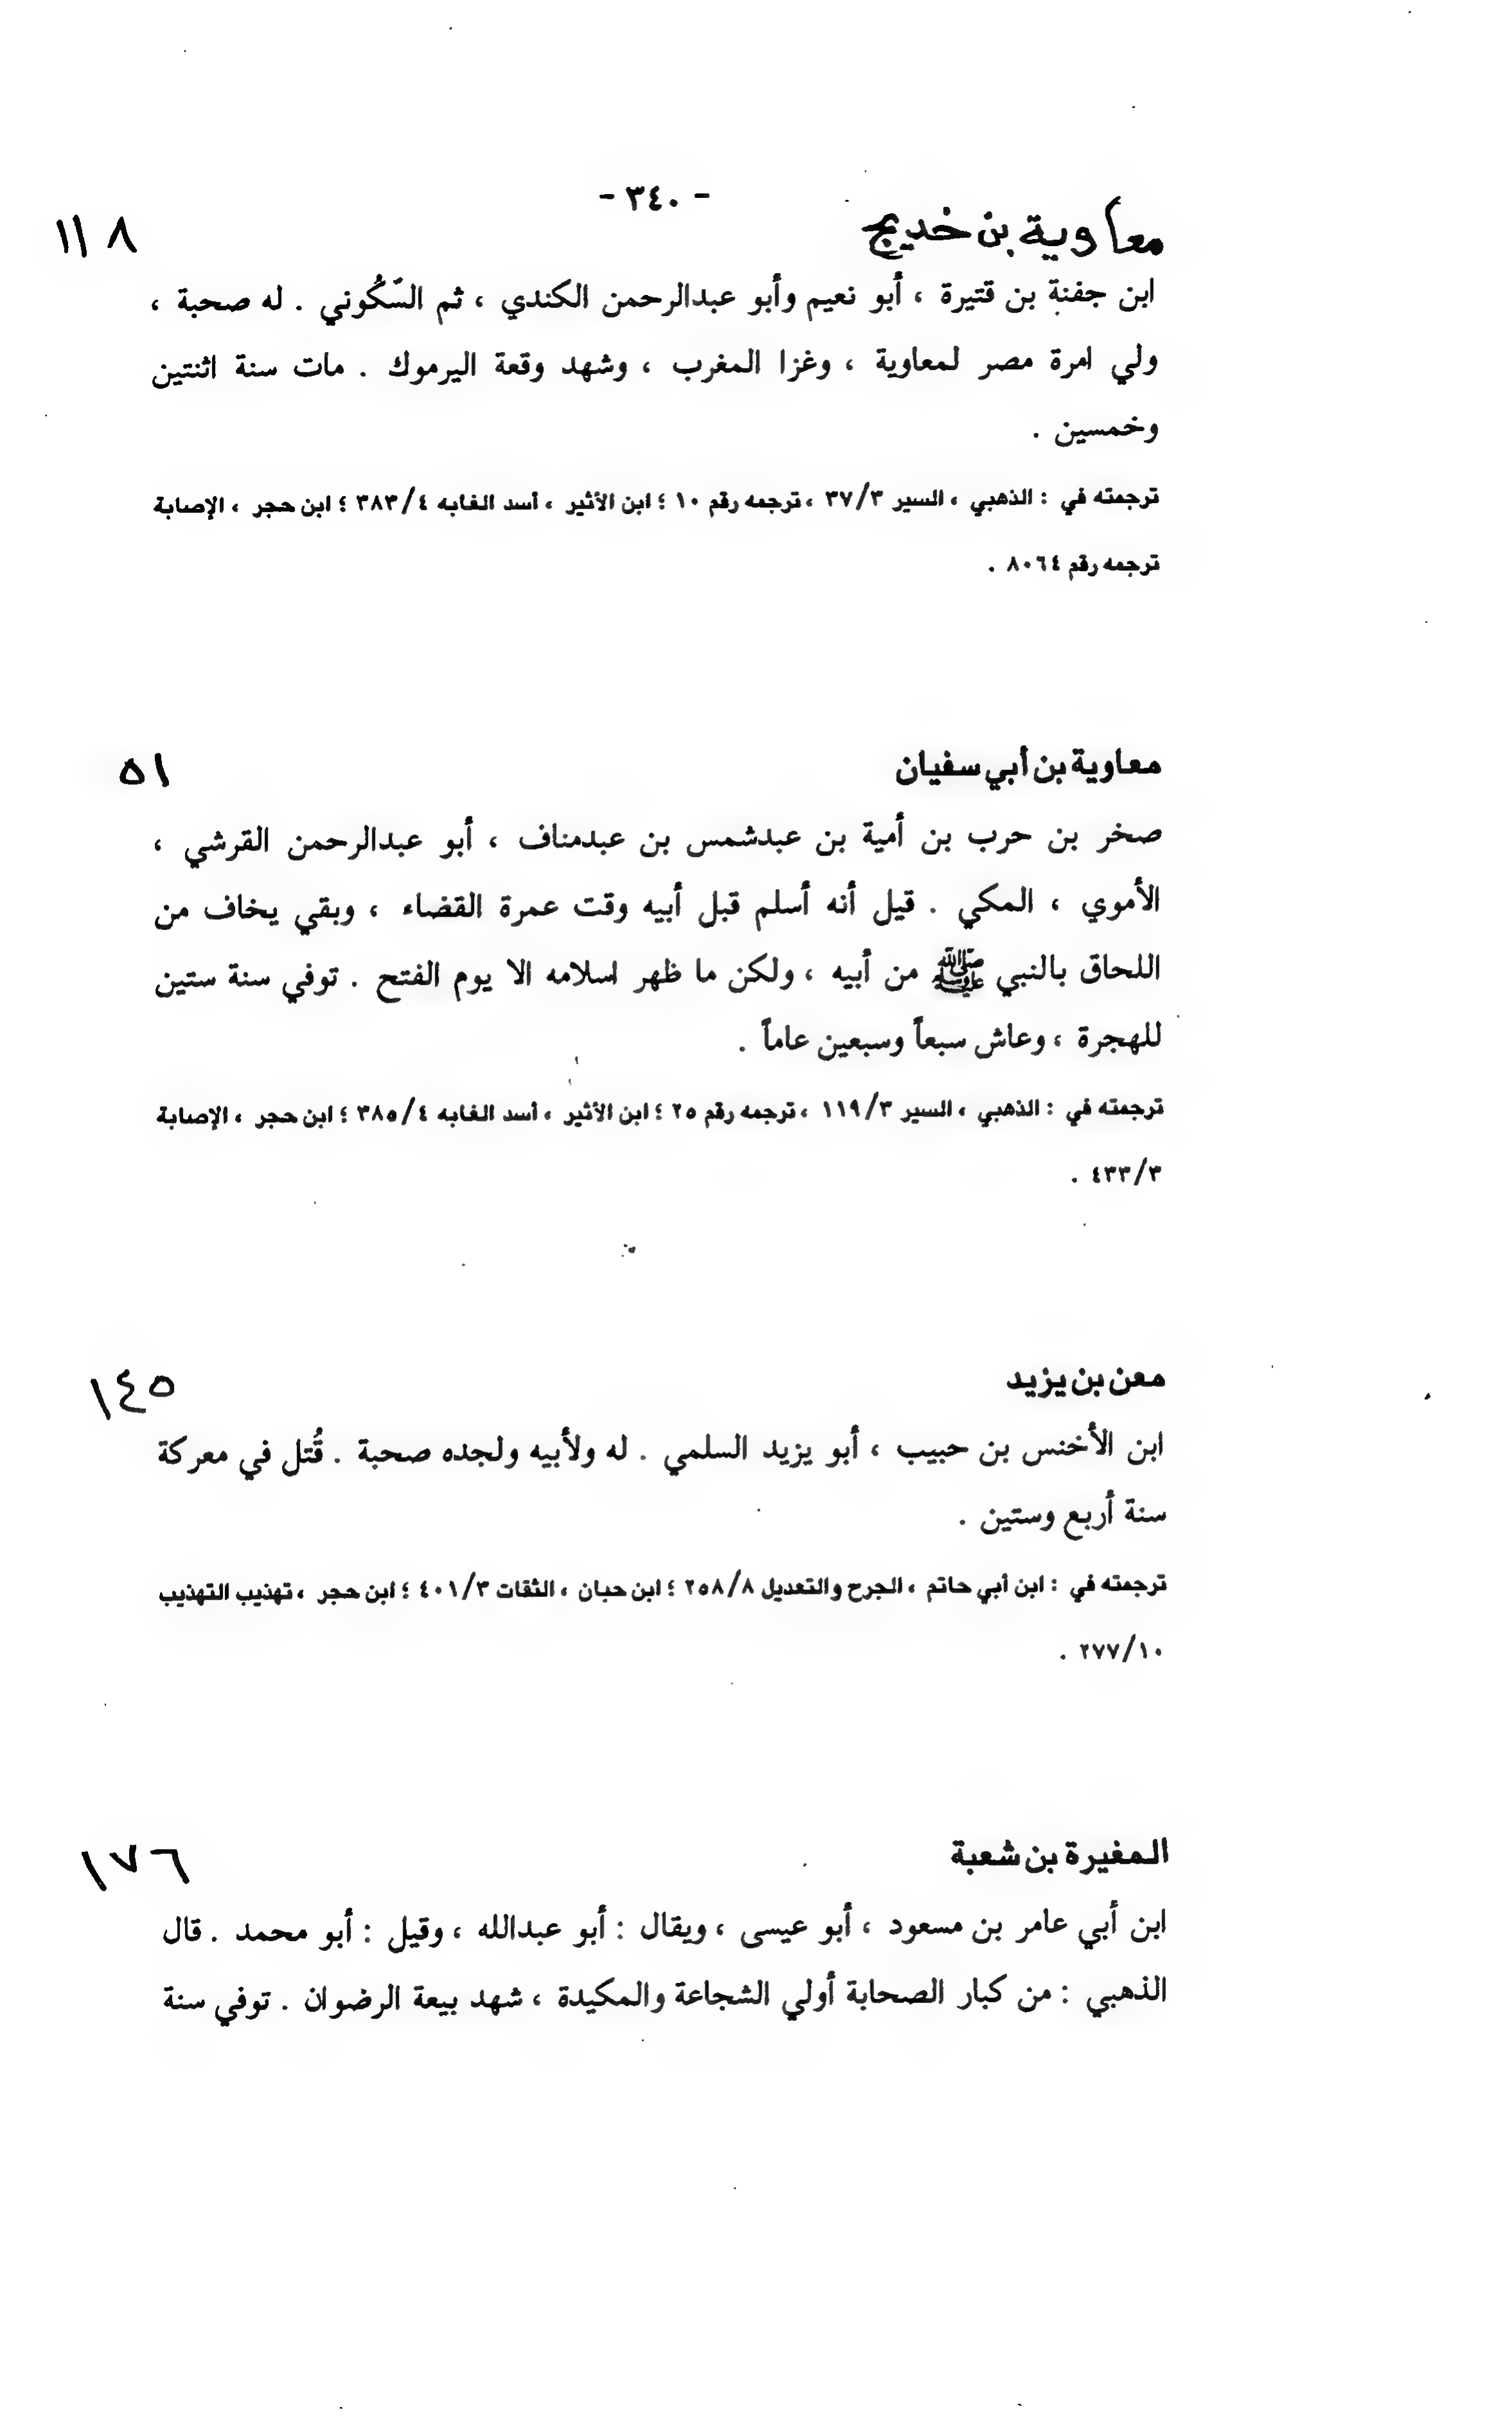 - ٣٤٠ -
معاوية بن خديج ١١٨
ابن جفنة بن قتيرة ، أبو نعيم وأبو عبدالرحمن الكندي ، ثم السّكُوني . له صحبة ،
ولي امرة مصر لمعاوية ، وغزا المغرب ، وشهد وقعة اليرموك . مات سنة اثنتين
وخمسين .
ترجمته في : الذهبي ، السير ٣٧/٣ ، ترجمه رقم ١٠ ؛ ابن الأثير ، أسد الغابه ٣٨٣/٤ ؛ ابن حجر ، الإصابة
ترجمه رقم ٨٠٦٤ .
معاوية بن أبي سفيان ٥١
صخر بن حرب بن أمية بن عبدشمس بن عبدمناف ، أبو عبدالرحمن القرشي ،
الأموي ، المكي . قيل أنه أسلم قبل أبيه وقت عمرة القضاء ، وبقي يخاف من
اللحاق بالنبي ﷺ من أبيه ، ولكن ما ظهر اسلامه الا يوم الفتح . توفي سنة ستين
للهجرة ، وعاش سبعاً وسبعين عاماً .
ترجمته في : الذهبي ، السير ١١٩/٣ ، ترجمه رقم ٢٥ ؛ ابن الأثير ، أسد الغابه ٣٨٥/٤ ؛ ابن حجر ، الإصابة
٤٣٣/٣ .
معن بن يزيد ١٤٥
ابن الأخنس بن حبيب ، أبو يزيد السلمي . له ولأبيه ولجده صحبة . قُتل في معركة
سنة أربع وستين .
ترجمته في : ابن أبي حاتم ، الجرح والتعديل ٢٥٨/٨ ؛ ابن حبان ، الثقات ٤٠١/٣ ؛ ابن حجر ، تهذيب التهذيب
٢٧٧/١٠ .
المغيرة بن شعبة ١٧٦
ابن أبي عامر بن مسعود ، أبو عيسى ، ويقال : أبو عبدالله ، وقيل : أبو محمد . قال
الذهبي : من كبار الصحابة أولي الشجاعة والمكيدة ، شهد بيعة الرضوان . توفي سنة